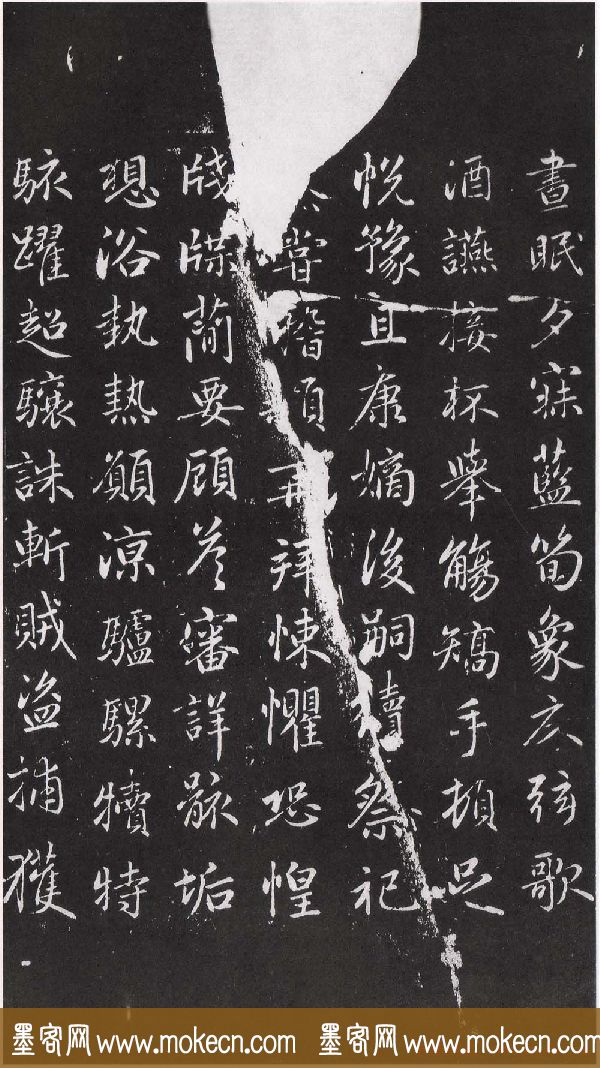 晝眠夕寐藍筍象床弦歌
酒讌接杯舉觴矯手頓足
悅豫且康嫡後嗣續祭祀
嘗稽顙再拜悚懼恐惶
牋牒簡要顧荅審詳骸垢
想浴執熱願涼驢騾犢特
駭躍超驤誅斬賊盜捕獲
墨客网 www.mokecn.com 墨客网 www.mokecn.com